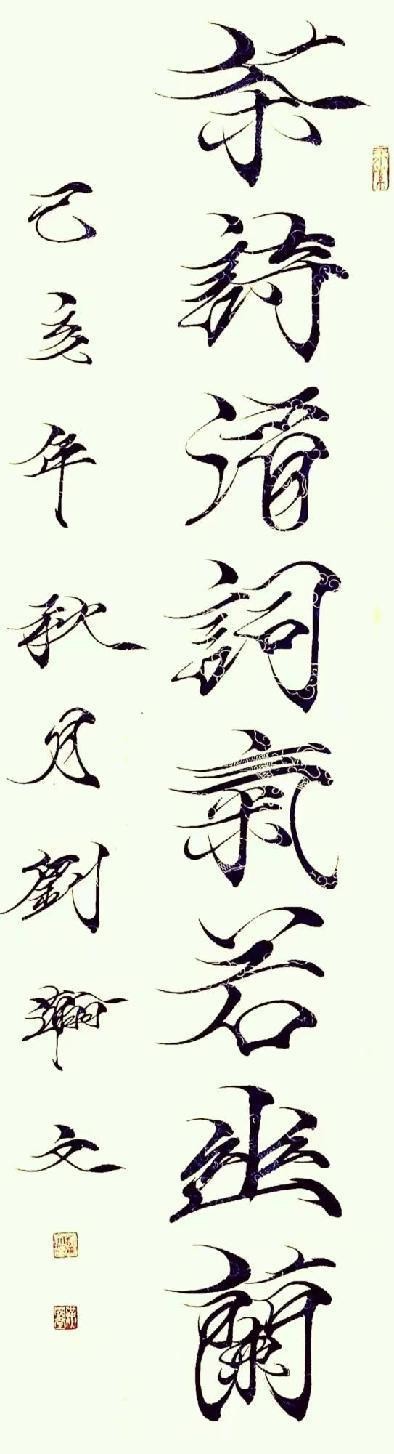 茶詩清詞氣若幽蘭
己亥年秋月劉瀚文